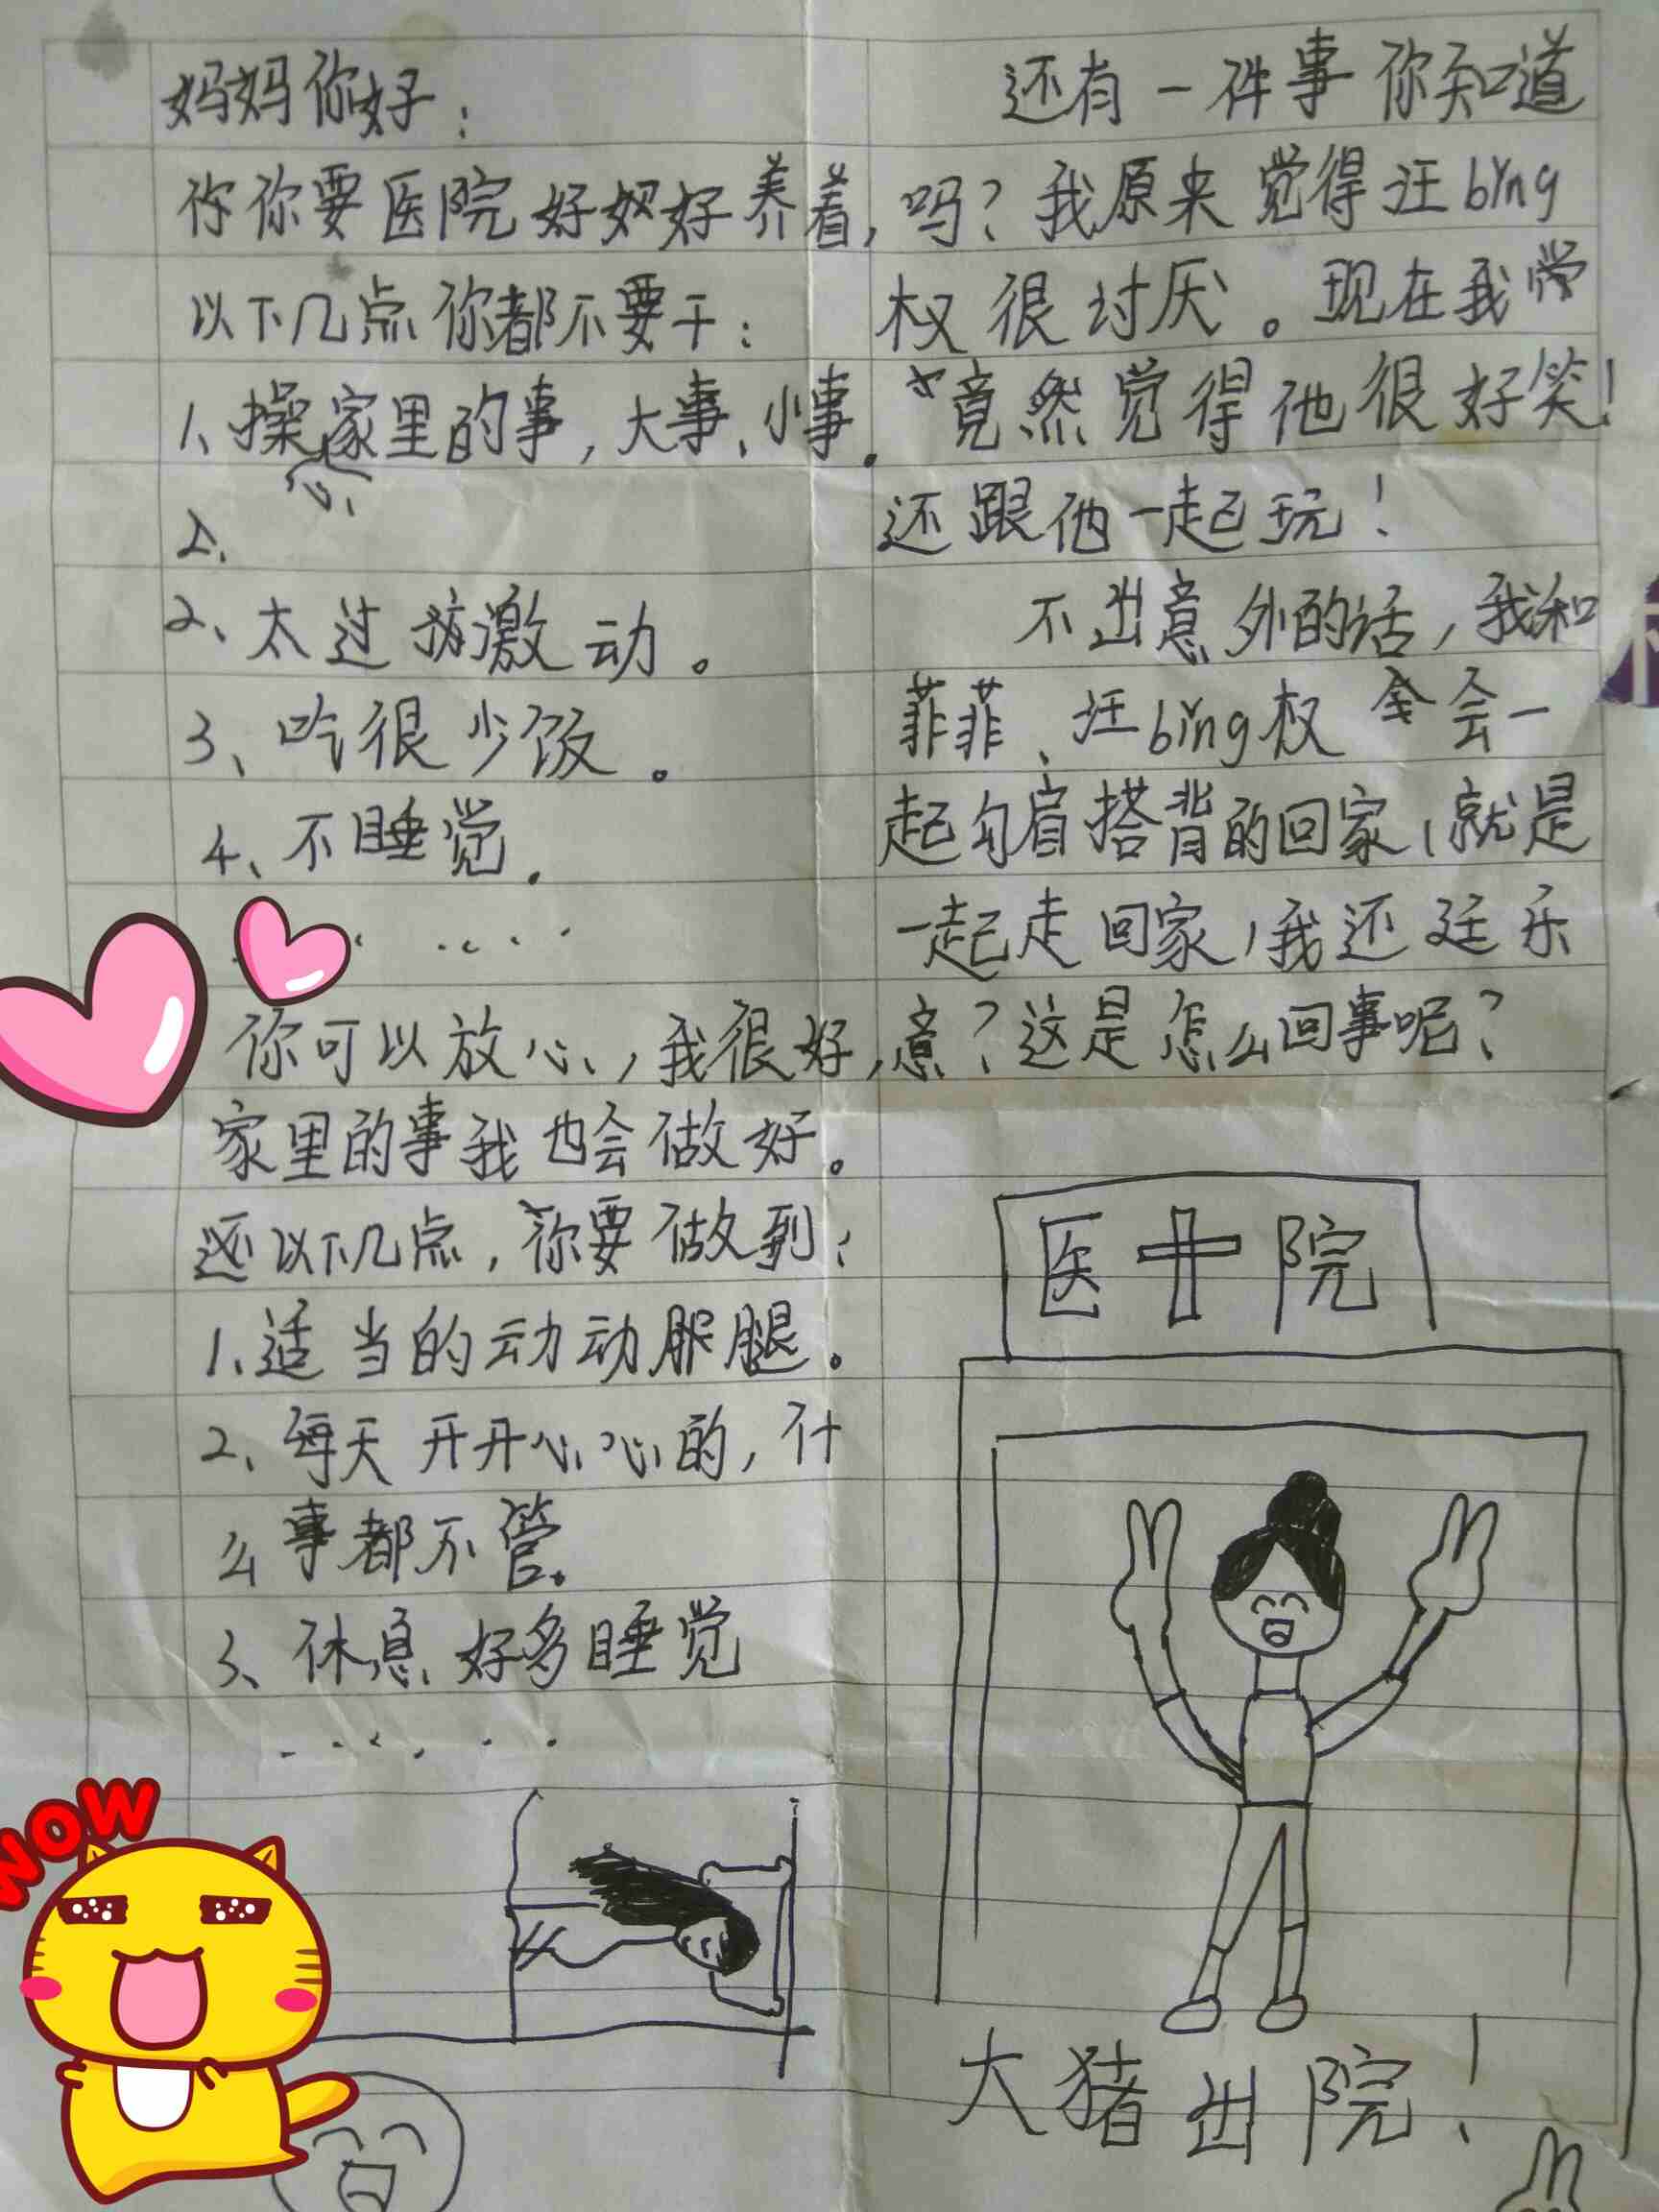 妈妈你好：
你你要医院好好好养着，
以下几点你都不要干：
1、操心家里的事，大事、小事。
2、
2、太过激动。
3、吃很少饭。
4、不睡觉。
......
你可以放心，我很好，
家里的事我也会做好。
还以下几点，你要做到：
1、适当的动动腿。
2、每天开开心心的，什
么事都不管。
3、休息好多睡觉
......
还有一件事你知道
吗？我原来觉得汪bǐng
权很讨厌。现在我
竟然觉得他很好笑！
还跟他一起玩！
不出意外的话，我和
菲菲、汪bǐng权会一
起勾肩搭背的回家，就是
一起走回家，我还廷乐
意？这是怎么回事呢？
医十院
大猪出院！
WOW